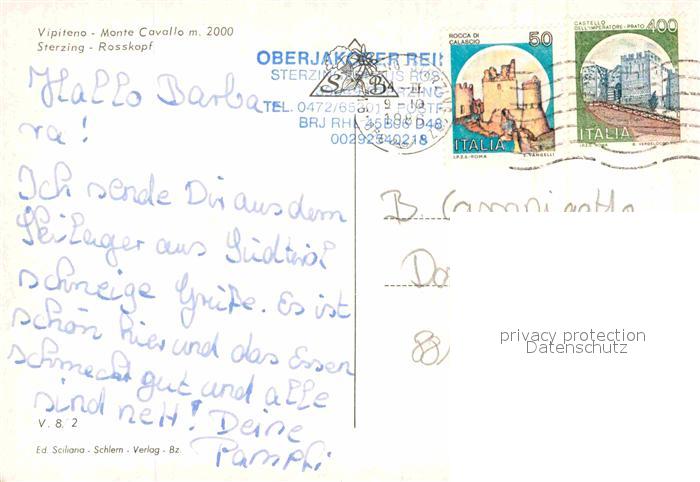 Vipiteno - Monte Cavallo m. 2000
Sterzing - Rosskopf
OBERJAKOBER REI
STERZING
TEL. 0472/65
BRJ RH
ROCCA DI CALASCIO
50
ITALIA
I.P.Z.S.-ROMA E. VANGELLI
CASTELLO DELL'IMPERATORE-PRATO
400
ITALIA
I.P.Z.S.-ROMA
Hallo Barba
ra!
Ich sende Dir aus dem
Skilager aus Südtirol
schneige Grüße. Es ist
schön hier und das Essen
schmeckt gut und alle
sind nett! Deine
B.
privacy protection
Datenschutz
V. 8. 2
Ed. Sciliana - Schlern - Verlag - Bz.